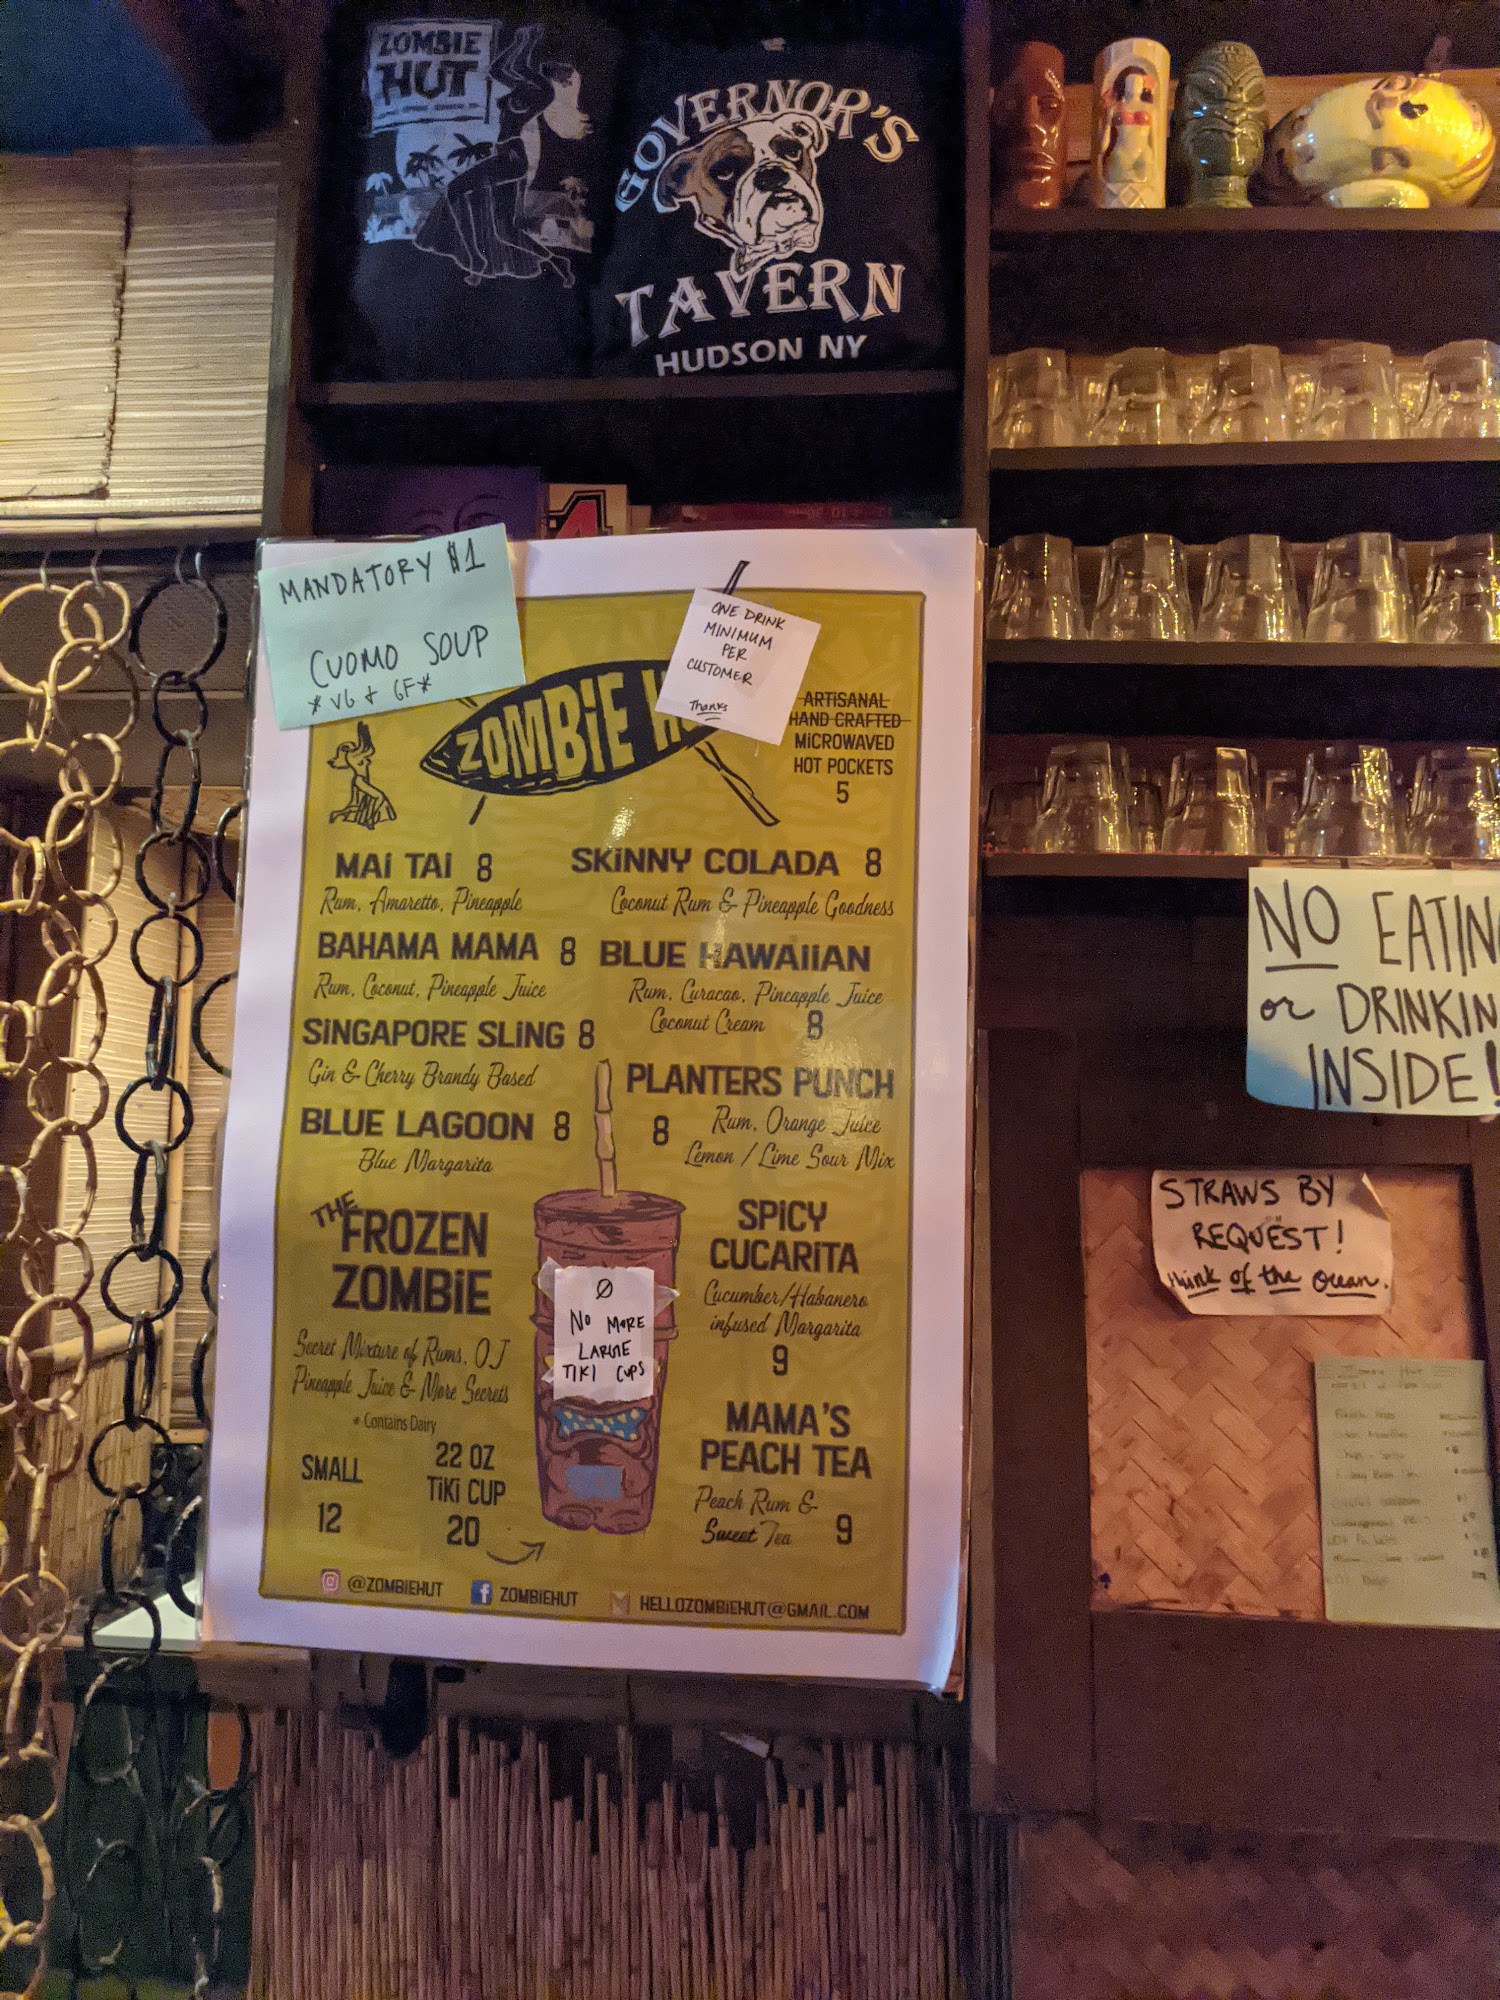 ZOMBIE
HUT
GOVERNOR'S
TAVERN
HUDSON NY
MANDATORY $1
CUOMO SOUP
* VG + GF *
ONE DRINK
MINIMUM
PER
CUSTOMER
Thanks
ZOMBiE H
ARTiSANAL
HAND CRAFTED
MiCROWAVED
HOT POCKETS
5
MAi TAi 8
Rum, Amaretto, Pineapple
SKiNNY COLADA 8
Coconut Rum & Pineapple Goodness
BAHAMA MAMA 8
Rum, Coconut, Pineapple Juice
BLUE HAWAiiAN
Rum, Curacao, Pineapple Juice
Coconut Cream 8
SiNGAPORE SLiNG 8
Gin & Cherry Brandy Based
PLANTERS PUNCH
8 Rum, Orange Juice
Lemon / Lime Sour Mix
BLUE LAGOON 8
Blue Margarita
THE
FROZEN
ZOMBiE
Secret Mixture of Rums, OJ
Pineapple Juice & More Secrets
* Contains Dairy
SMALL
12
22 OZ
TiKi CUP
20
Ø
NO MORE
LARGE
TIKI CUPS
SPiCY
CUCARiTA
Cucumber/Habanero
infused Margarita
9
MAMA'S
PEACH TEA
Peach Rum &
Sweet Tea 9
@ZOMBiEHUT
ZOMBiEHUT
HELLOZOMBiEHUT@GMAIL.COM
NO EATING
or DRINKIN
INSIDE!
STRAWS BY
REQUEST!
think of the ocean.
Zombie Hut